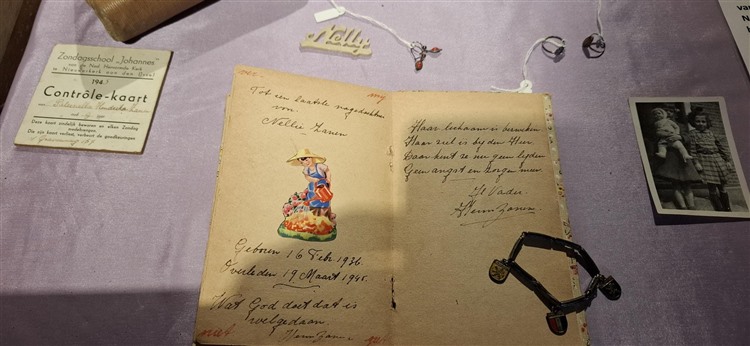 Zondagsschool „Johannes"
van de Ned. Hervormde Kerk
te Nieuwerkerk aan den IJssel
194
Contrôle-kaart
van
Deze kaart eindelijk bewaren en elken Zondag
medebrengen.
Die zijn kaart verliest, verbeurt de goedkeuringen
Nelly
Tot een laatste nagedachten
van
Nellie Zanen
Geboren 16 Febr 1936.
Overleden 19 Maart 1945.
Wat God doet dat is
welgedaan.
Herm Zanen
niet
Haar lichaam is bezweken
Haar ziel is bij den Heer
Daar kent ze nu geen lijden
Geen angst en zorgen meer
Je Vader.
Herm Zanen
van